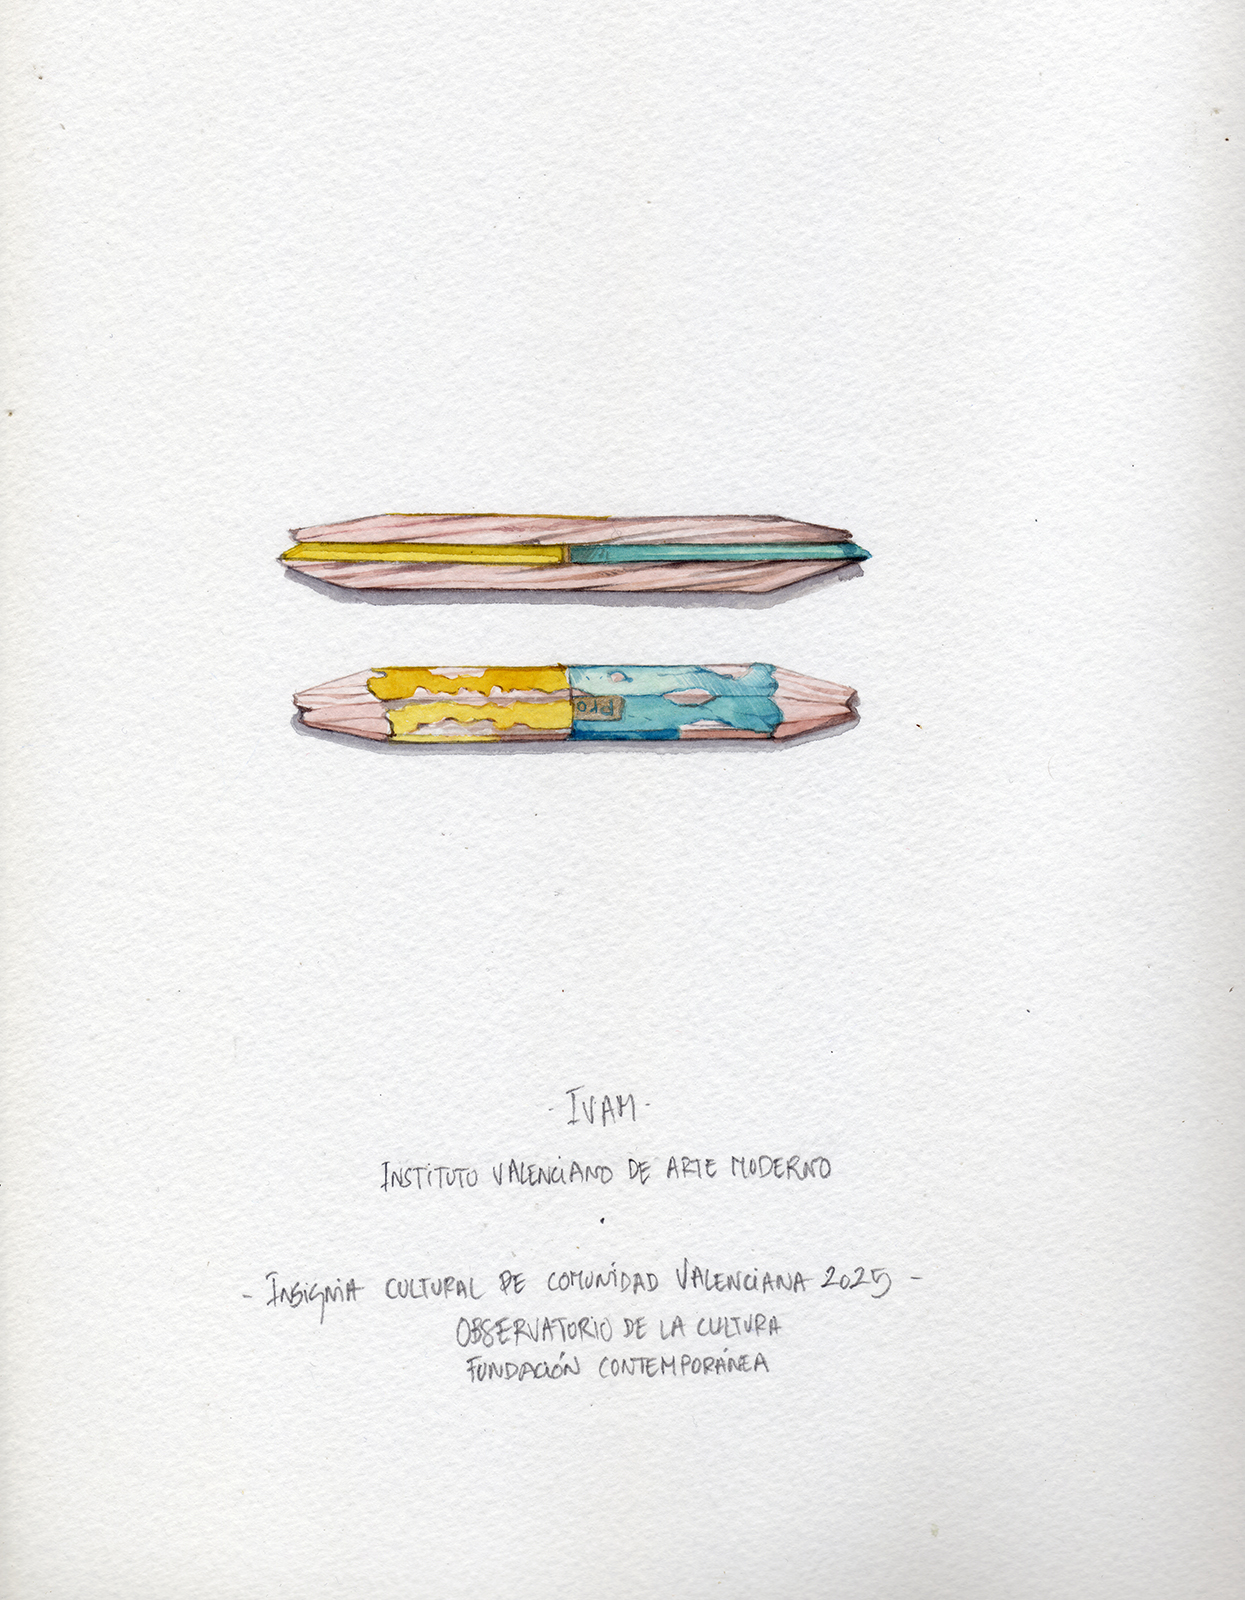 Pro
- IVAM -
INSTITUTO VALENCIANO DE ARTE MODERNO
- INSIGNIA CULTURAL DE COMUNIDAD VALENCIANA 2025 -
OBSERVATORIO DE LA CULTURA
FUNDACIÓN CONTEMPORÁNEA